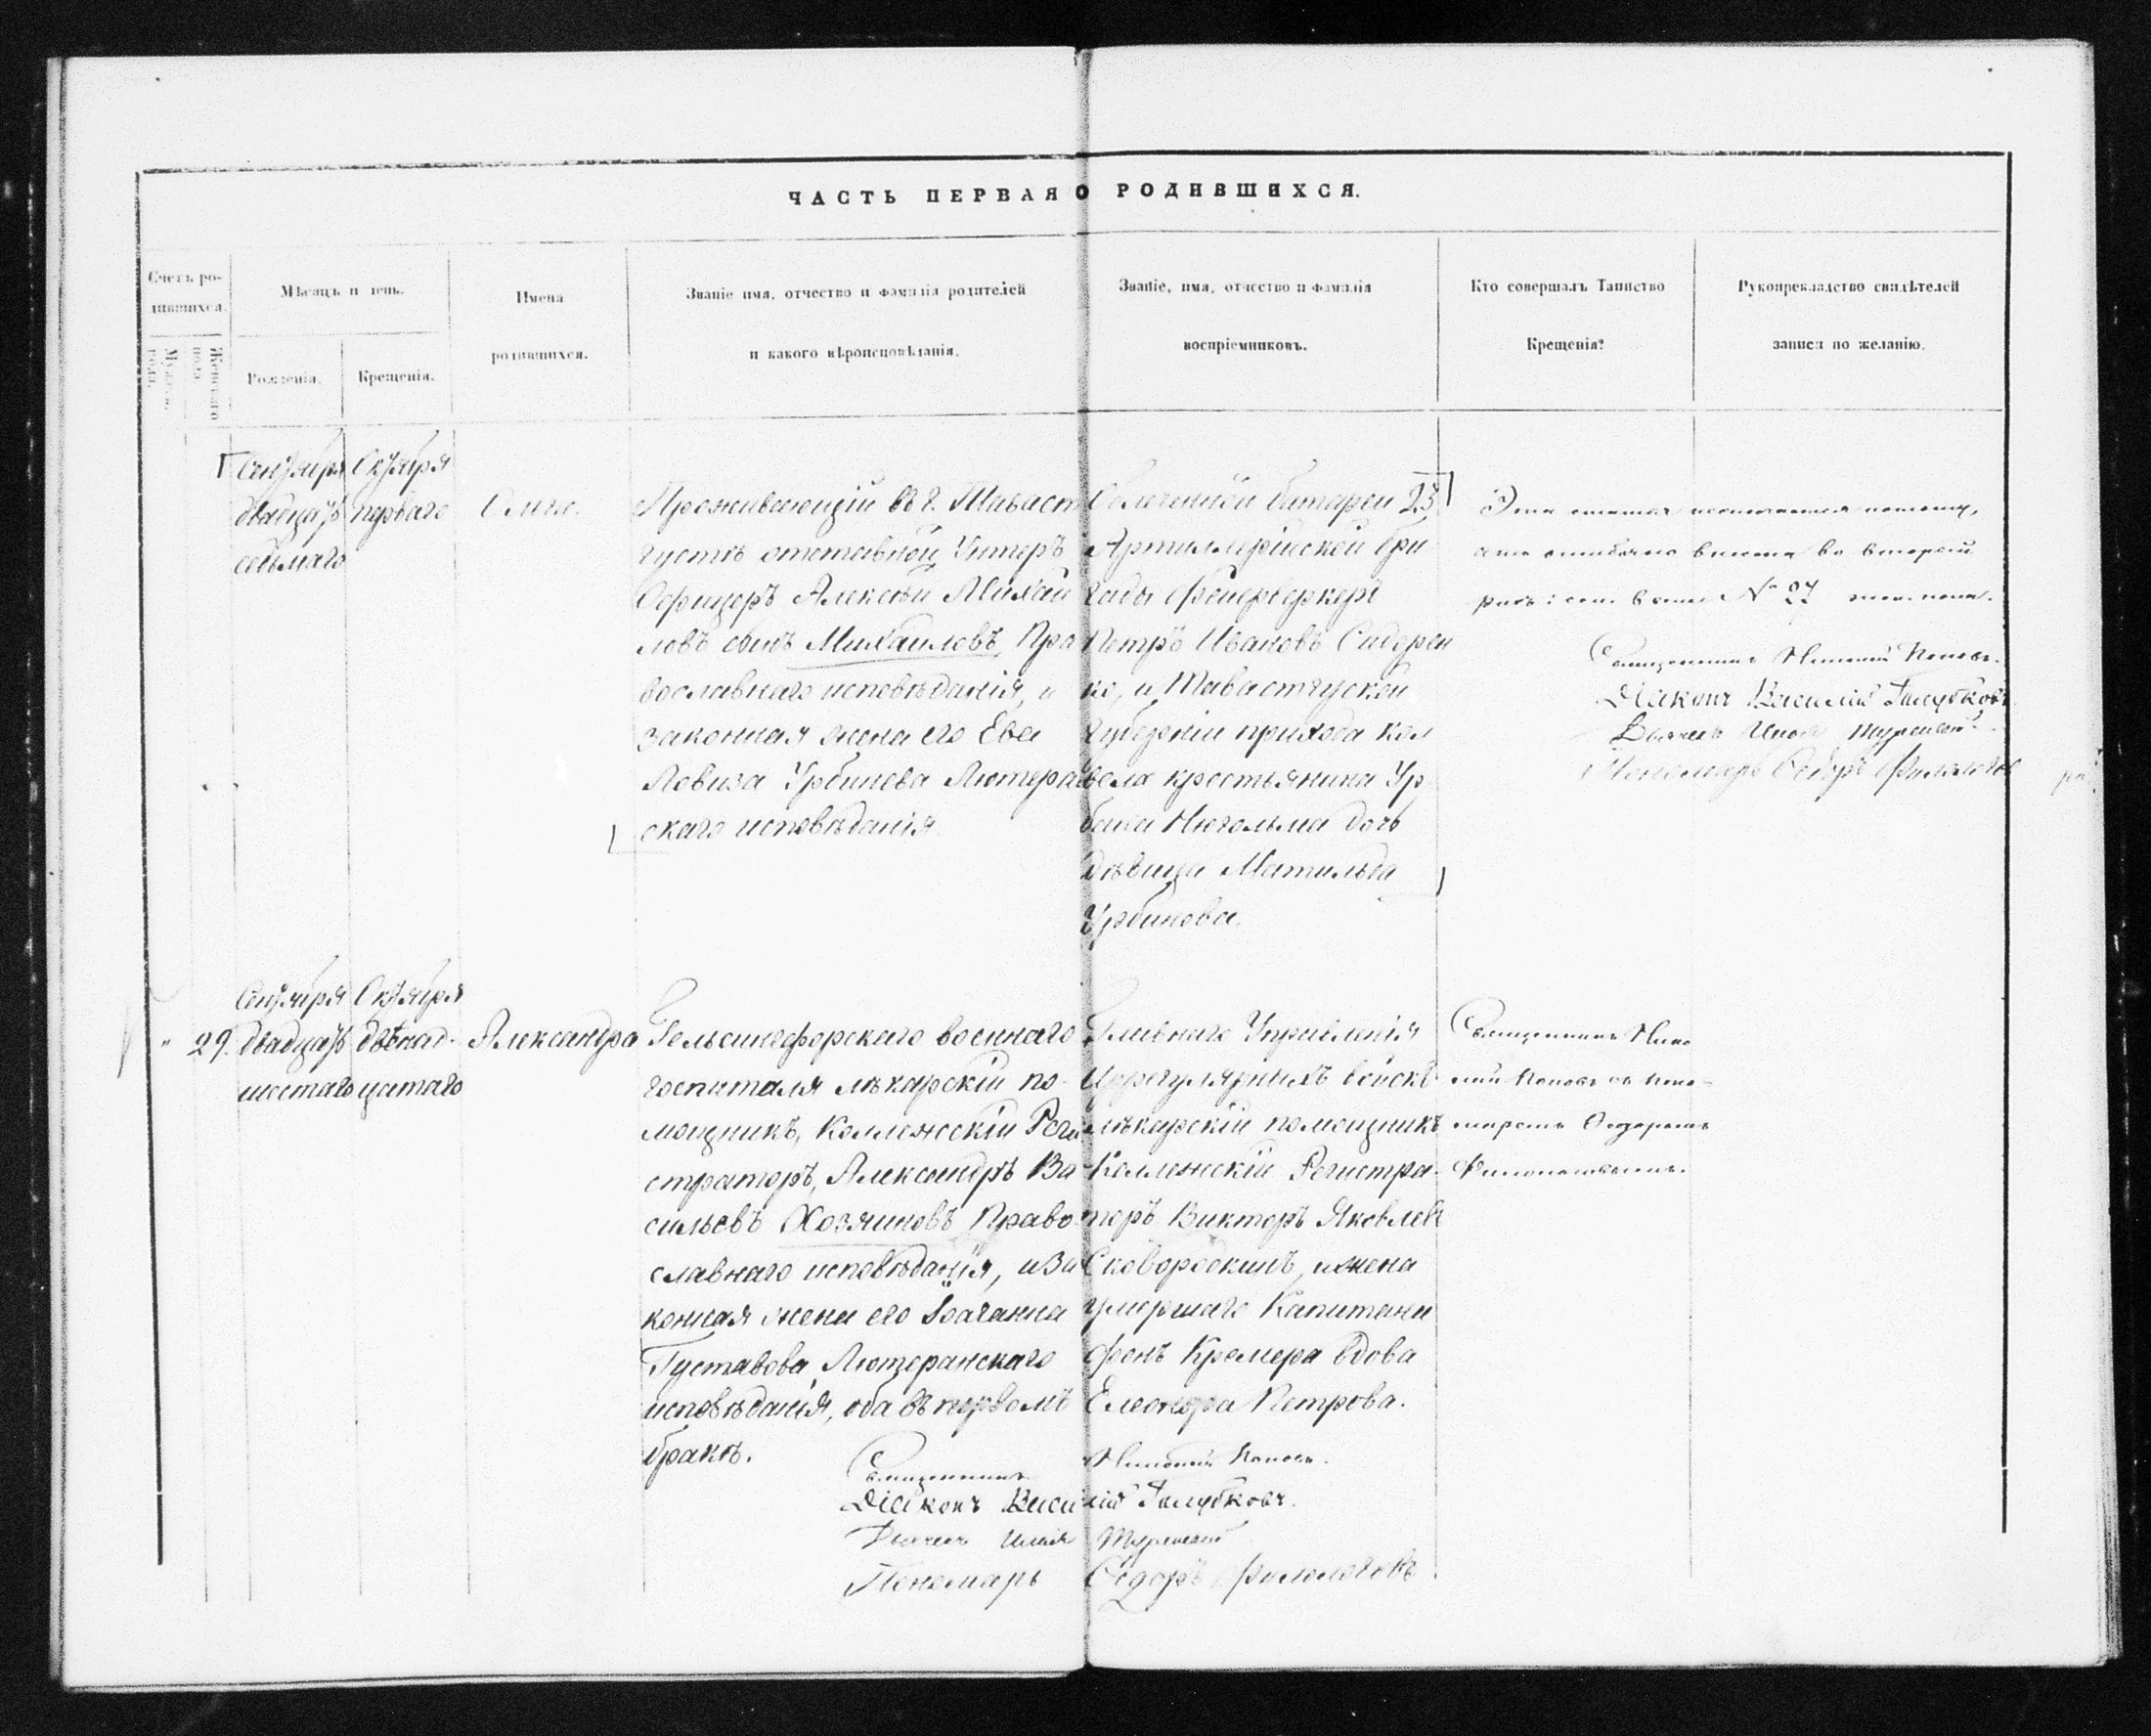 ЧАСТЬ ПЕРВАЯ О РОДИВШИХСЯ.
Счетъ ро-
дившихся.
Мужеска
пола.
Женскаго
пола.
Мѣсяцъ и день.
Рожденія.
Крещенія.
Имена
родившихся.
Званіе имя, отчество и фамилія родителей
и какого вѣроисповѣданія.
Званіе, имя, отчество и фамилія
воспріемниковъ.
Кто совершалъ Таинство
Крещенія?
Рукоприкладство свидѣтелей
записи по желанію.
Сентября
двадцать
седьмаго
Октября
перваго
Ольга.
Проживающій въ г. Таваст
густѣ отставной Унтеръ
Офицеръ Алексѣй Михай
ловъ сынъ Михаиловъ, Пра
вославнаго исповѣданія, и
законная жена его Ева
Ловиза Урбинова Лютеран
скаго исповѣданія.
Облегченной батареи 23
Артиллерійской бри
гады фейерверкеръ
Петръ Ивановъ Сидорен
ко, и Тавастгуской
губерніи прихода Кал
вола крестьянина Ур
бана Нюгольма дочь
дѣвица Матильда
Урбинова.
Эта статья
что ошибочно во второй
разъ: № 27
Священникъ Николай Поповъ.
Діаконъ Василій Голубковъ
Дьячекъ Илья
Пономарь Ѳедоръ Филологовъ
" 29.
Сентября
двадцать
шестаго
Октября
двѣнад-
цатаго
Александра
Гельсингфорскаго военнаго
госпиталя лѣкарскій по-
мощникъ, Коллежскій Реги
страторъ, Александръ Ва-
сильевъ Хозяиновъ Право-
славнаго исповѣданія, и за
конная жена его Іоаганна
Густавова, Лютеранскаго
исповѣданія, оба въ первомъ
бракѣ.
Главнаго Управленія
Иррегулярныхъ войскъ
лѣкарскій помощникъ
Коллежскій Регистра-
торъ Викторъ Яковлевъ
Сковородкинъ, и жена
умершаго Капитана
фонъ Кремера вдова
Елеонора Петрова.
Священникъ Нико
лай Поповъ съ Поно-
маремъ Ѳедоромъ
Филологовымъ.
Священникъ Николай Поповъ.
Діаконъ Василій Голубковъ.
Дьячекъ Илья
Пономарь Ѳедоръ Филологовъ.